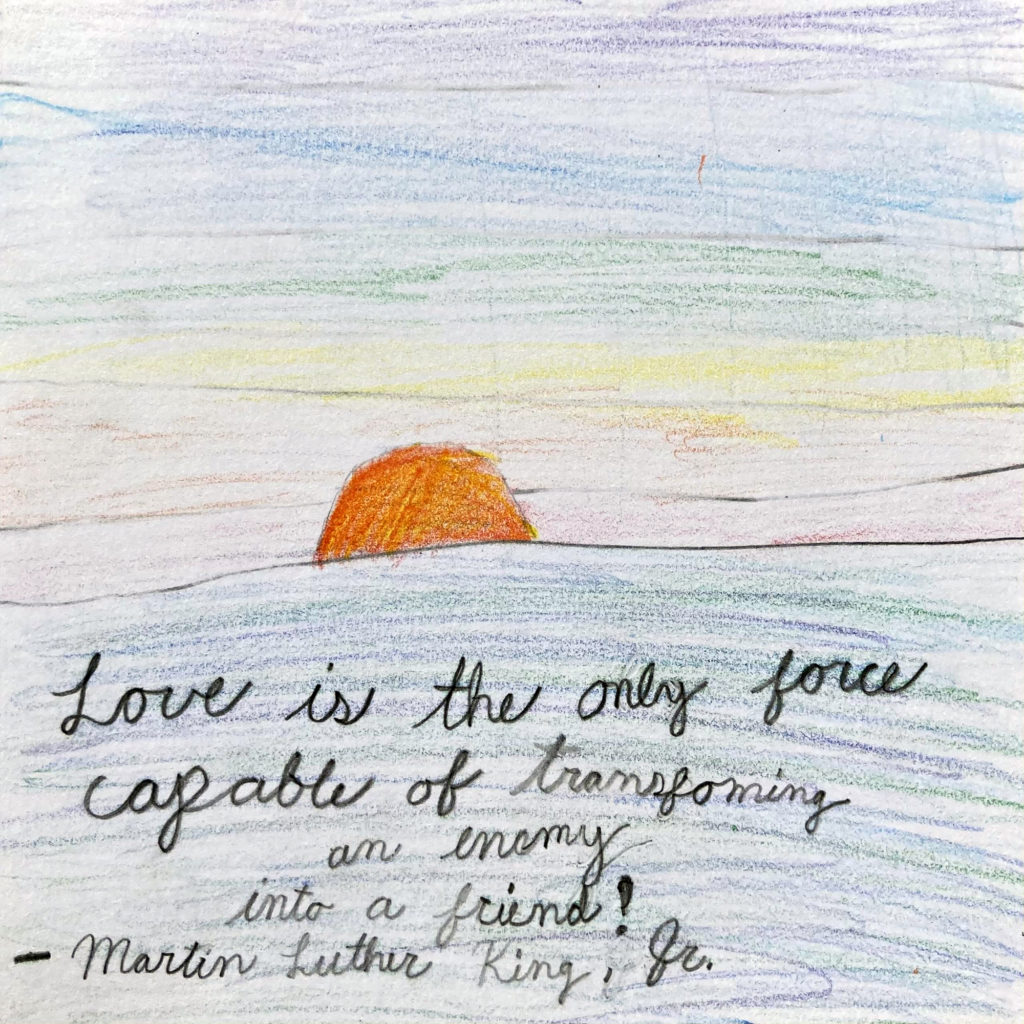 Love is the only force
capable of transfoming
an enemy
into a friend!
- Martin Luther King, Jr.